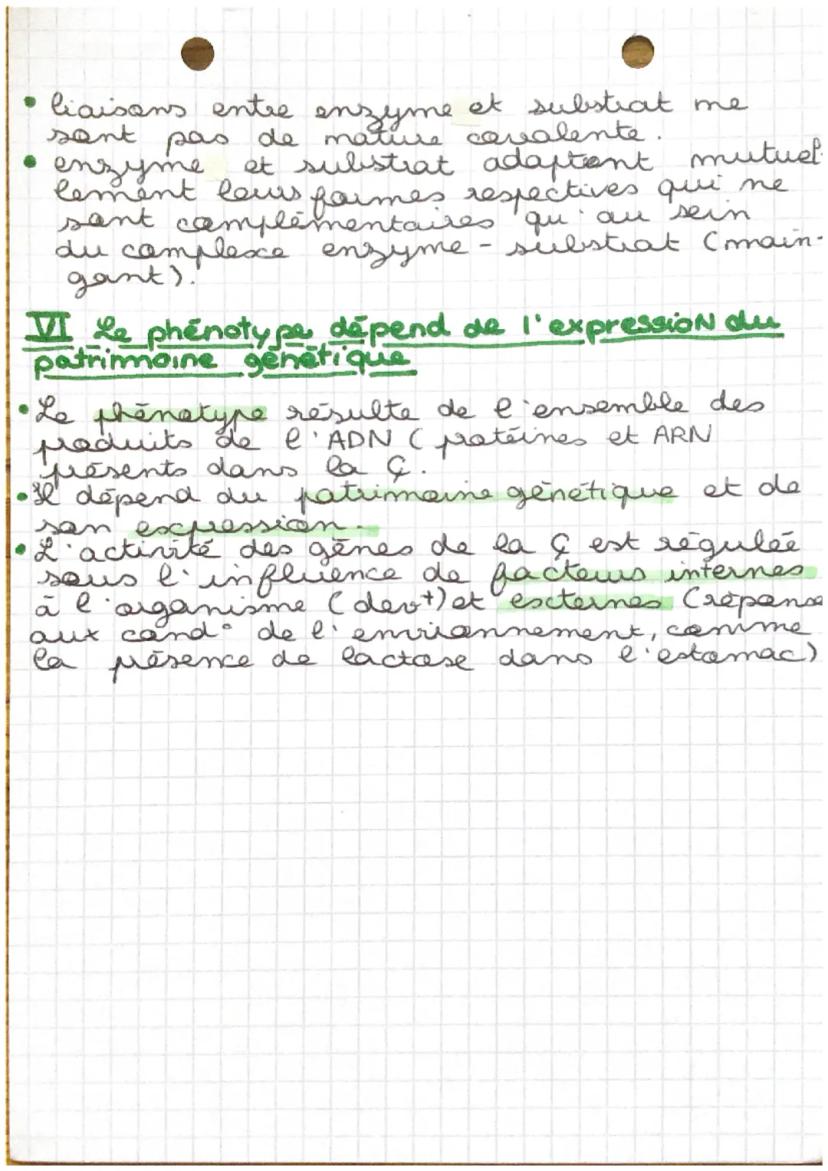 • liaisons entre enzyme et substrat ne
sont pas de nature covalente.
• enzyme et substrat adaptent mutuel-
lement leurs formes respectives qui ne
sont complémentaires qu'au sein
du complexe enzyme - substrat (main-
gant).
VI Le phénotype dépend de l'expression du
patrimoine génétique
• Le phénotype résulte de l'ensemble des
produits de l'ADN (protéines et ARN
présents dans la Ç.
• Il dépend du patrimoine génétique et de
son expression.
• L'activité des gènes de la Ç est régulée
sous l'influence de facteurs internes
à l'organisme (devt) et externes (répons
aux cond° de l'environnement, comme
la présence de lactose dans l'estomac)